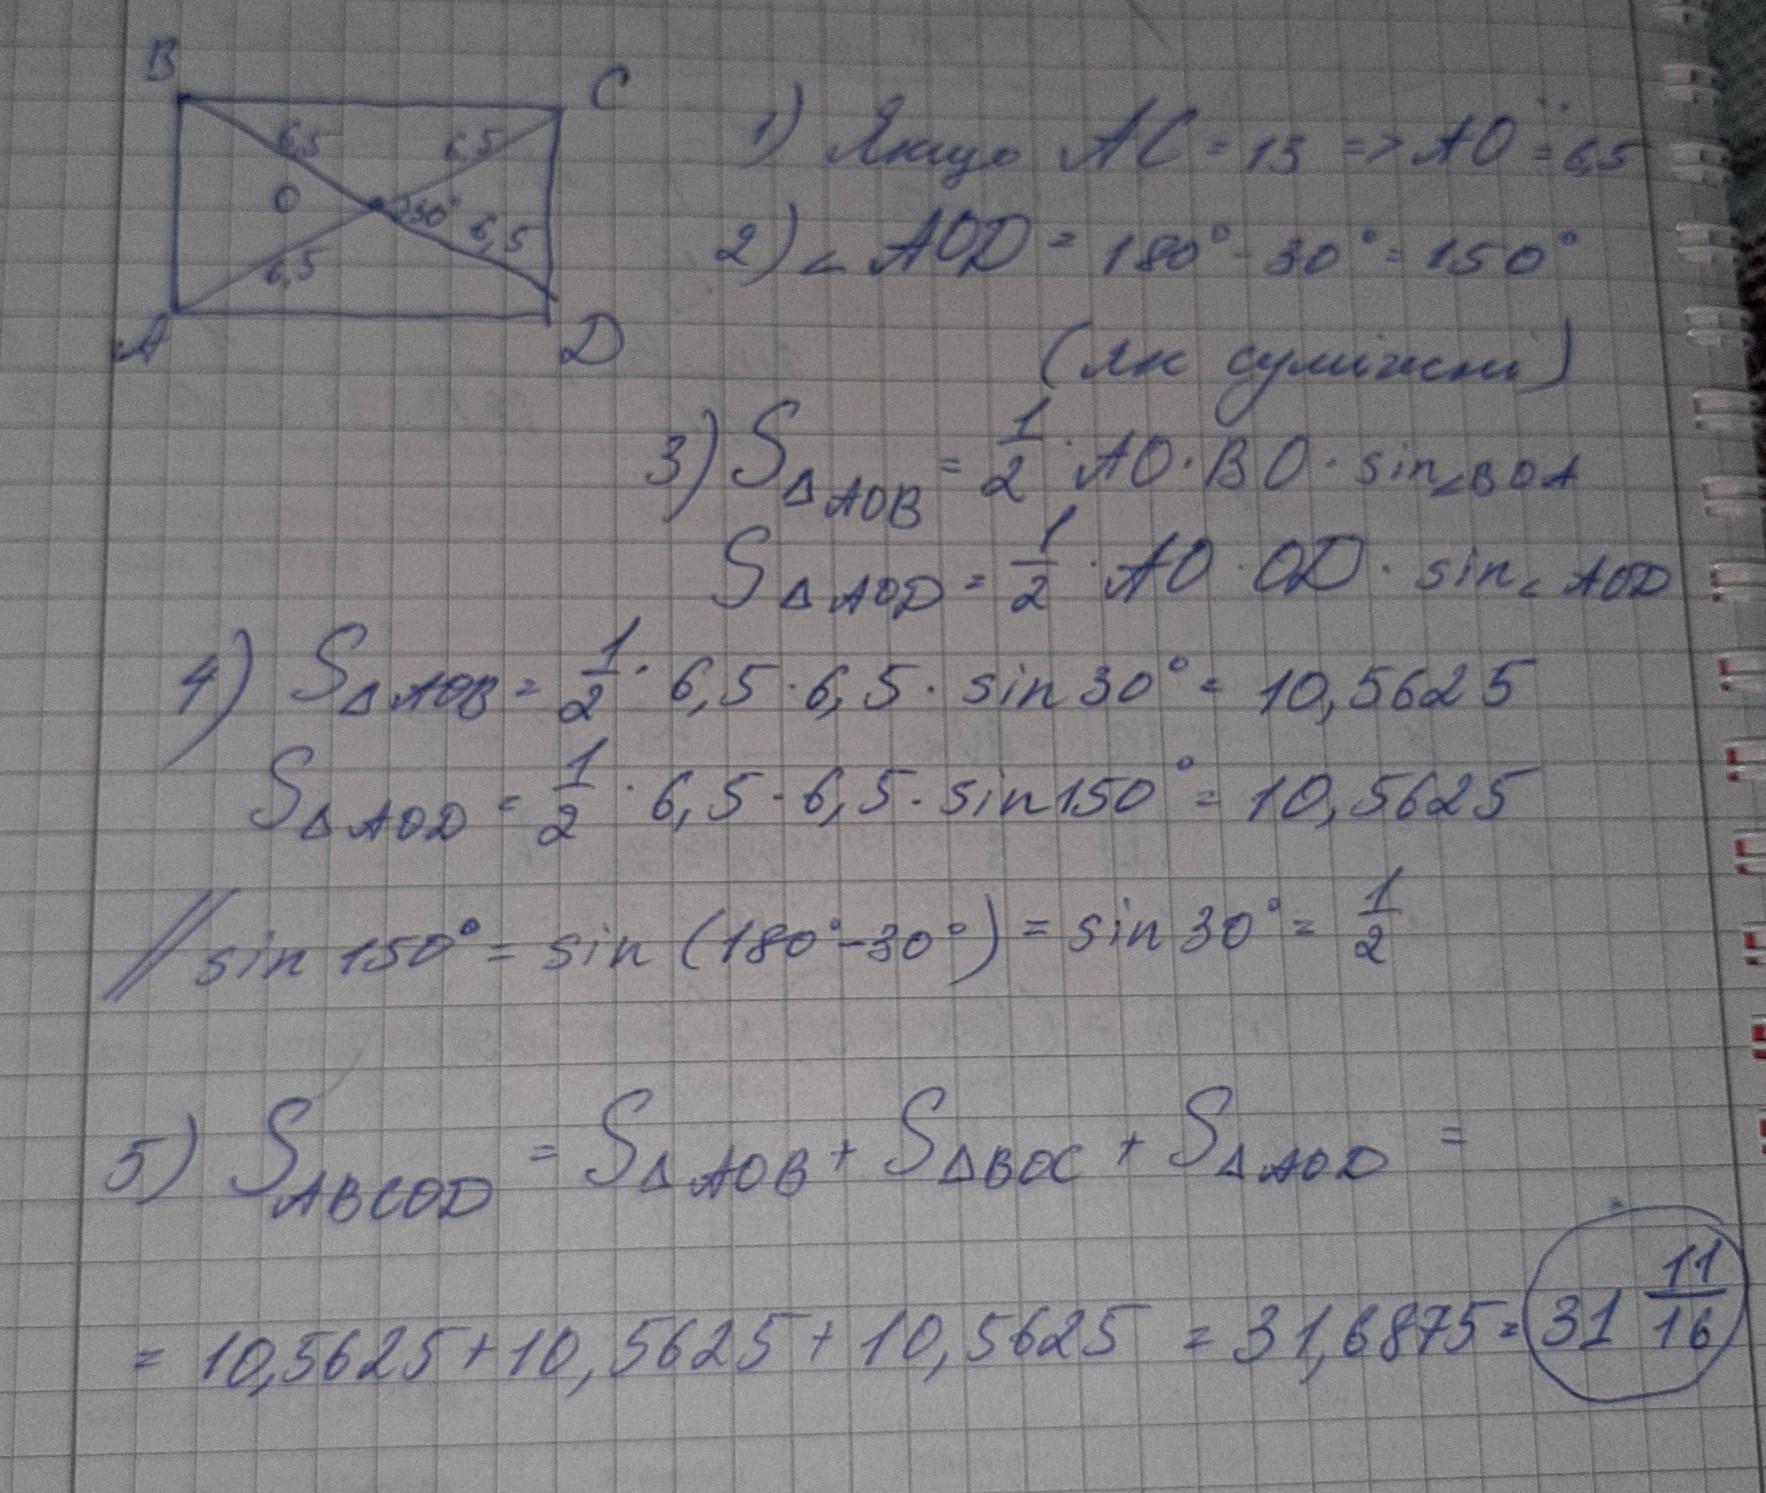 B
C
6,5
6,5
O
30°
6,5
6,5
A
D
1) Якщо AC = 13 => AO = 6,5
2) ∠ AOD = 180° - 30° = 150°
(як суміжні)
3) S△AOB = 1/2 · AO · BO · sin∠BOA
S△AOD = 1/2 · AO · OD · sin∠AOD
4) S△AOB = 1/2 · 6,5 · 6,5 · sin30° = 10,5625
S△AOD = 1/2 · 6,5 · 6,5 · sin150° = 10,5625
// sin 150° = sin (180° - 30°) = sin 30° = 1/2
5) SABCOD = S△AOB + S△BOC + S△AOD =
= 10,5625 + 10,5625 + 10,5625 = 31,6875 = 31 11/16